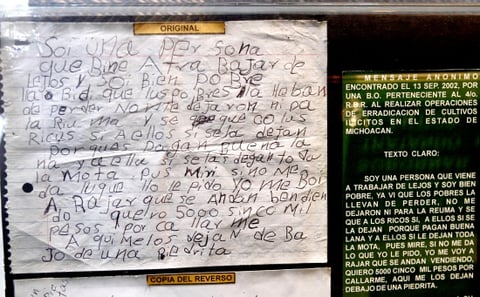 ORIGINAL
Soi una persona
que Bine A tra Bajar de
Lejos y soi Bien poBre
la
que lus poBres la lleBan
de perder No me dejaron ni pa
la
y se que co lus
Ricus si A ellos si se la dejan
porques pagan Buena la
na y a ellus si se lar degan to da
la Mota pus Miri sino Me
da lu que llo le pido yo me Boi
A RAjar que se Andan bendien
do quero 5000 sinco Mil
pesos por ca llar me
A qui Melos dejan de BA
Jo de una piedrita
COPIA DEL REVERSO
MENSAJE ANONIMO
ENCONTRADO EL 13 SEP. 2002, POR
UNA B.O. PERTENECIENTE AL 4/o.
R.B.R. AL REALIZAR OPERACIONES
DE ERRADICACION DE CULTIVOS
ILICITOS EN EL ESTADO DE
MICHOACAN.
TEXTO CLARO:
SOY UNA PERSONA QUE VIENE
A TRABAJAR DE LEJOS Y SOY BIEN
POBRE, YA VI QUE LOS POBRES LA
LLEVAN DE PERDER, NO ME
DEJARON NI PARA LA REUMA Y SE
QUE A LOS RICOS SI, A ELLOS SI SE
LA DEJAN PORQUE PAGAN BUENA
LANA Y A ELLOS SI LE DEJAN TODA
LA MOTA, PUES MIRE, SI NO ME DA
LO QUE YO LE PIDO, YO ME VOY A
RAJAR QUE SE ANDAN VENDIENDO,
QUIERO 5000 CINCO MIL PESOS POR
CALLARME, AQUI ME LOS DEJAN
DEBAJO DE UNA PIEDRITA.